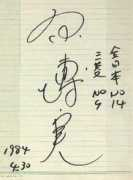 全日本 NO 14
三菱 NO 9
原博実
1984
4.30